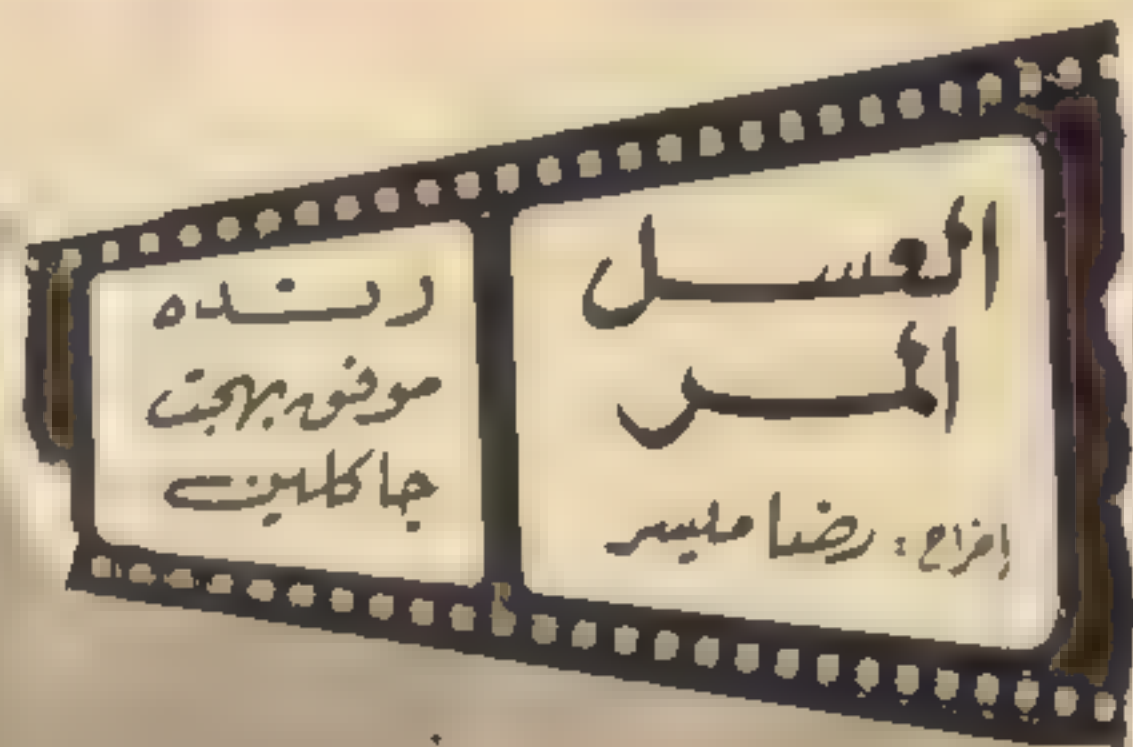 العسل
المر
إخراج : رضا ميسر
رنده
موفق بهجت
جاكلين